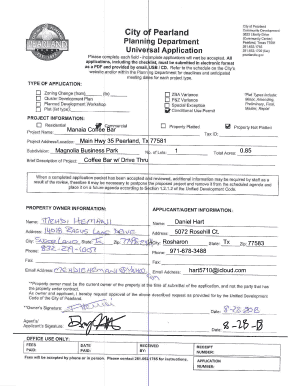 City of Pearland
Planning Department
Universal Application
City of Pearland
Community Development
3523 Liberty Drive
(Community Center)
Pearland, Texas 77581
281-652-1765
pearlandtx.gov
PEARLAND
Please complete each field - incomplete applications will not be accepted. All
applications, including the checklist, must be submitted in electronic format
as a PDF and provided by email, USB / CD. Refer to the schedule on the City's
website and/or within the Planning Department for deadlines and anticipated
meeting dates for each project.
TYPE OF APPLICATION:
Zoning Change
Cluster Development Plan
Planned Development Workshop
Plat (list type)
ZBA Variance
P&Z Variance
Special Exception
Conditional Use Permit
Plat Types include:
Minor, Amending
Preliminary, Final
Master, Replat
PROJECT INFORMATION:
Residential
Commercial
Property Platted
Property Not Platted
Project Name: Manaia Coffee Bar
Tax ID:
Project Address/Location: Main Hwy 35 Pearland, Tx 77581
Subdivision: Magnolia Business Park No. of Lots: 1 Total Acres: 0.85
Brief Description of Project: Coffee Bar w/ Drive Thru
When a completed application packet has been accepted and reviewed, additional information may be required by staff as a
result of the review, therefore it may be necessary to postpone the proposed project and remove it from the scheduled agenda and
place it on a future agenda according to Section 1.2.1.2 of the Unified Development Code.
PROPERTY OWNER INFORMATION:
APPLICANT/AGENT INFORMATION:
Name: MEHDI HEMANI
Name: Daniel Hart
Address:
Address: 5072 Rosehill Ct.
City:
City: Rosharon State: Tx Zip: 77583
Phone:
Phone: 971-678-3488
Fax:
Fax:
Email Address:
Email Address: hart5710@icloud.com
*Property owner must be the current owner of the property at the time of submittal of the application, and not the party that has
the property under contract.
As owner and applicant, I hereby request approval of the above described request as provided for by the Unified Development
Code of the City of Pearland.
*Owner's Signature:
Date:
Agent's/
Applicant's Signature:
Date:
OFFICE USE ONLY:
FEES
PAID:
DATE
PAID:
RECEIVED
BY:
RECEIPT
NUMBER:
Fees will be accepted by phone or in person. Please contact 281-652-1765 for instructions.
APPLICATION
NUMBER: